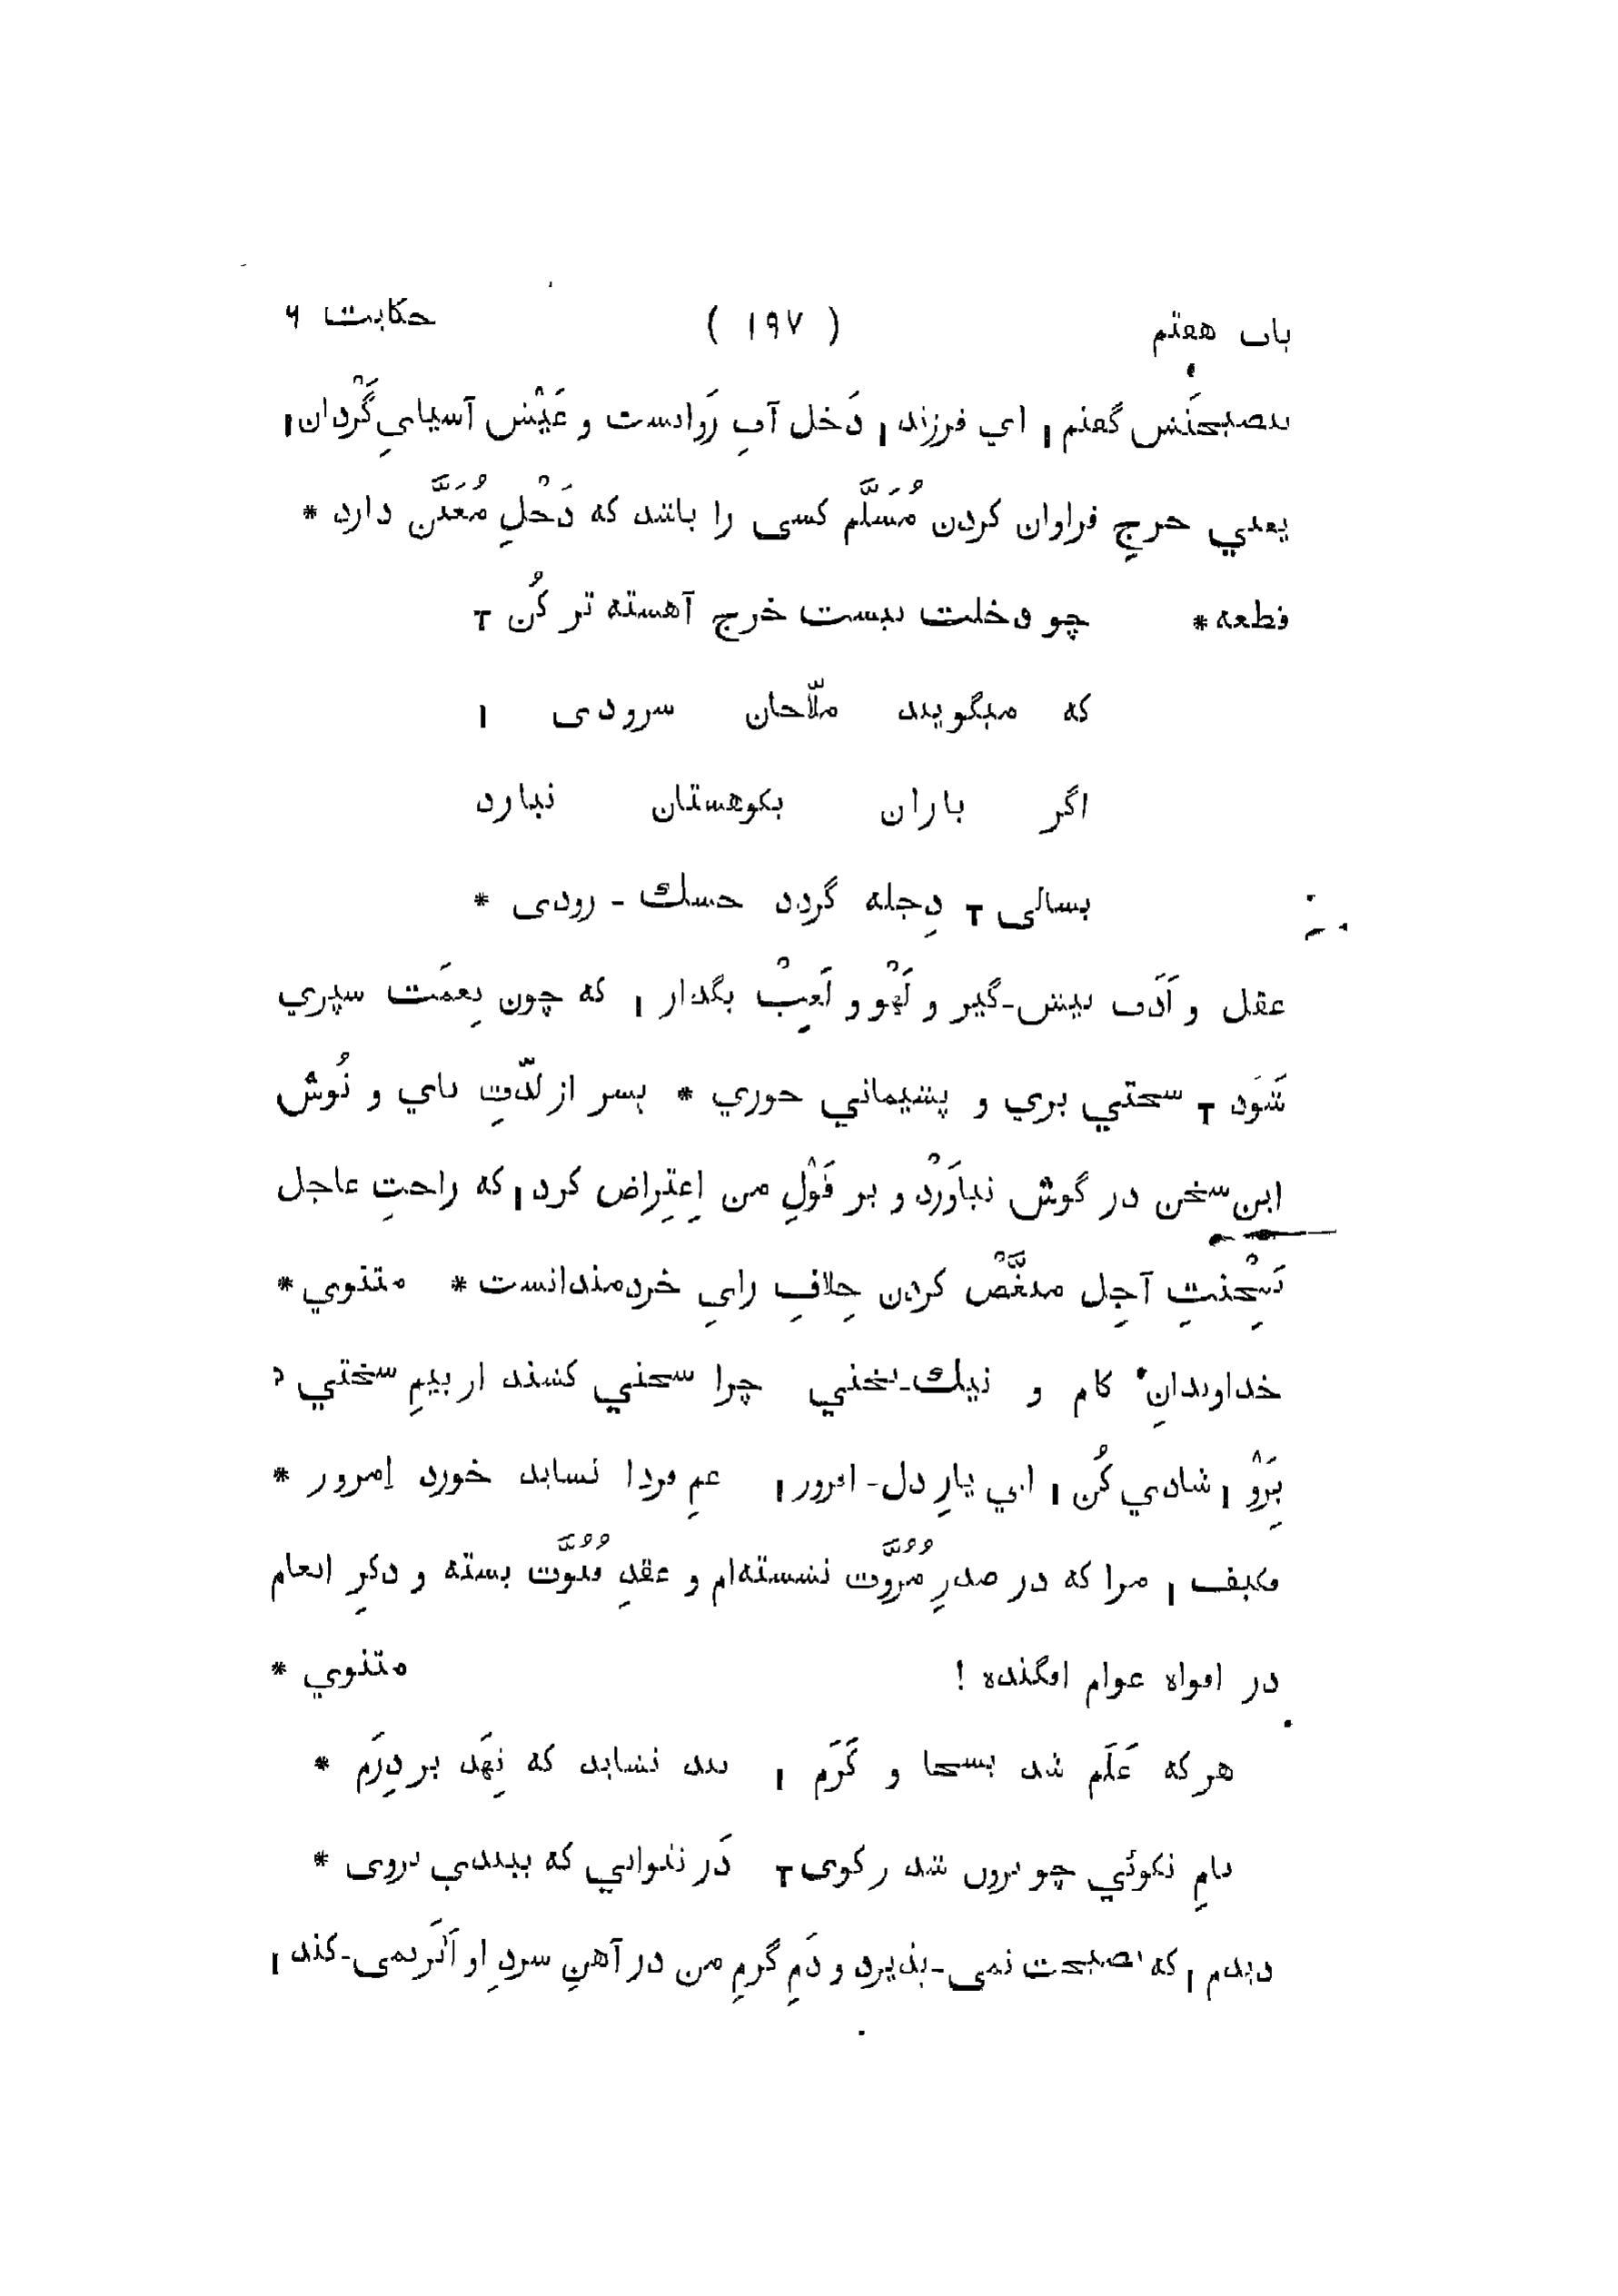 باب هفتم ( ۱۹۷ ) حکایت ۶
بنصیحتَش گفتم ا اي فرزند ا دَخل آبِ رَوانست و عَیْش آسیایِ گَرْدان ا
یعني خرجِ فراوان کردن مُسَلَّم کسی را باشد که دَخْلِ مُعَیَّن دارد *
قطعه * چو دخلت نیست خرج آهسته تر کُن ⊤
که میگویند ملّاحان سرودی ا
اگر باران بکوهستان نبارد
بسالی ⊤ دِجله گردد خشك - رودی *
عقل و اَدَب پیش-گیر و لَهْو و لَعِبْ بگذار ا که چون نِعمَت سپري
شَوَد ⊤ سختي بري و پشیماني خوري * پسر از لذّتِ ناي و نُوش
این سخن در گوش نیاوَرْد و بر قَوْلِ من اِعتِراض کرد ا که راحتِ عاجل
بَمِحْنتِ آجِل منغَّصْ کردن خِلافِ رایِ خردمندانست * مثنوي *
خداوندانِ کام و نیك-بختي چرا سختي کشند از بیمِ سختي ؟
بِرَوْ ا شادي کُن ا اي یارِ دل - افروز ا غمِ فردا نشاید خورد اِمروز *
فکیف ا مرا که در صدرِ مُرُوَّت نشسته‌ام و عقدِ فُتُوَّت بسته و ذکرِ انعام
در افواه عوام افگنده ! مثنوي *
هر که عَلَم شد بسخا و کَرَم ا بند نشاید که نِهَد بر دِرَم *
نامِ نکوئي چو برون شد ز کوی ⊤ دَر نتواني که ببندي بروی *
دیدم ا که نصیحت نمی-پذیرد و دَمِ گرمِ من در آهنِ سردِ او اَثَر نمی-کند ا